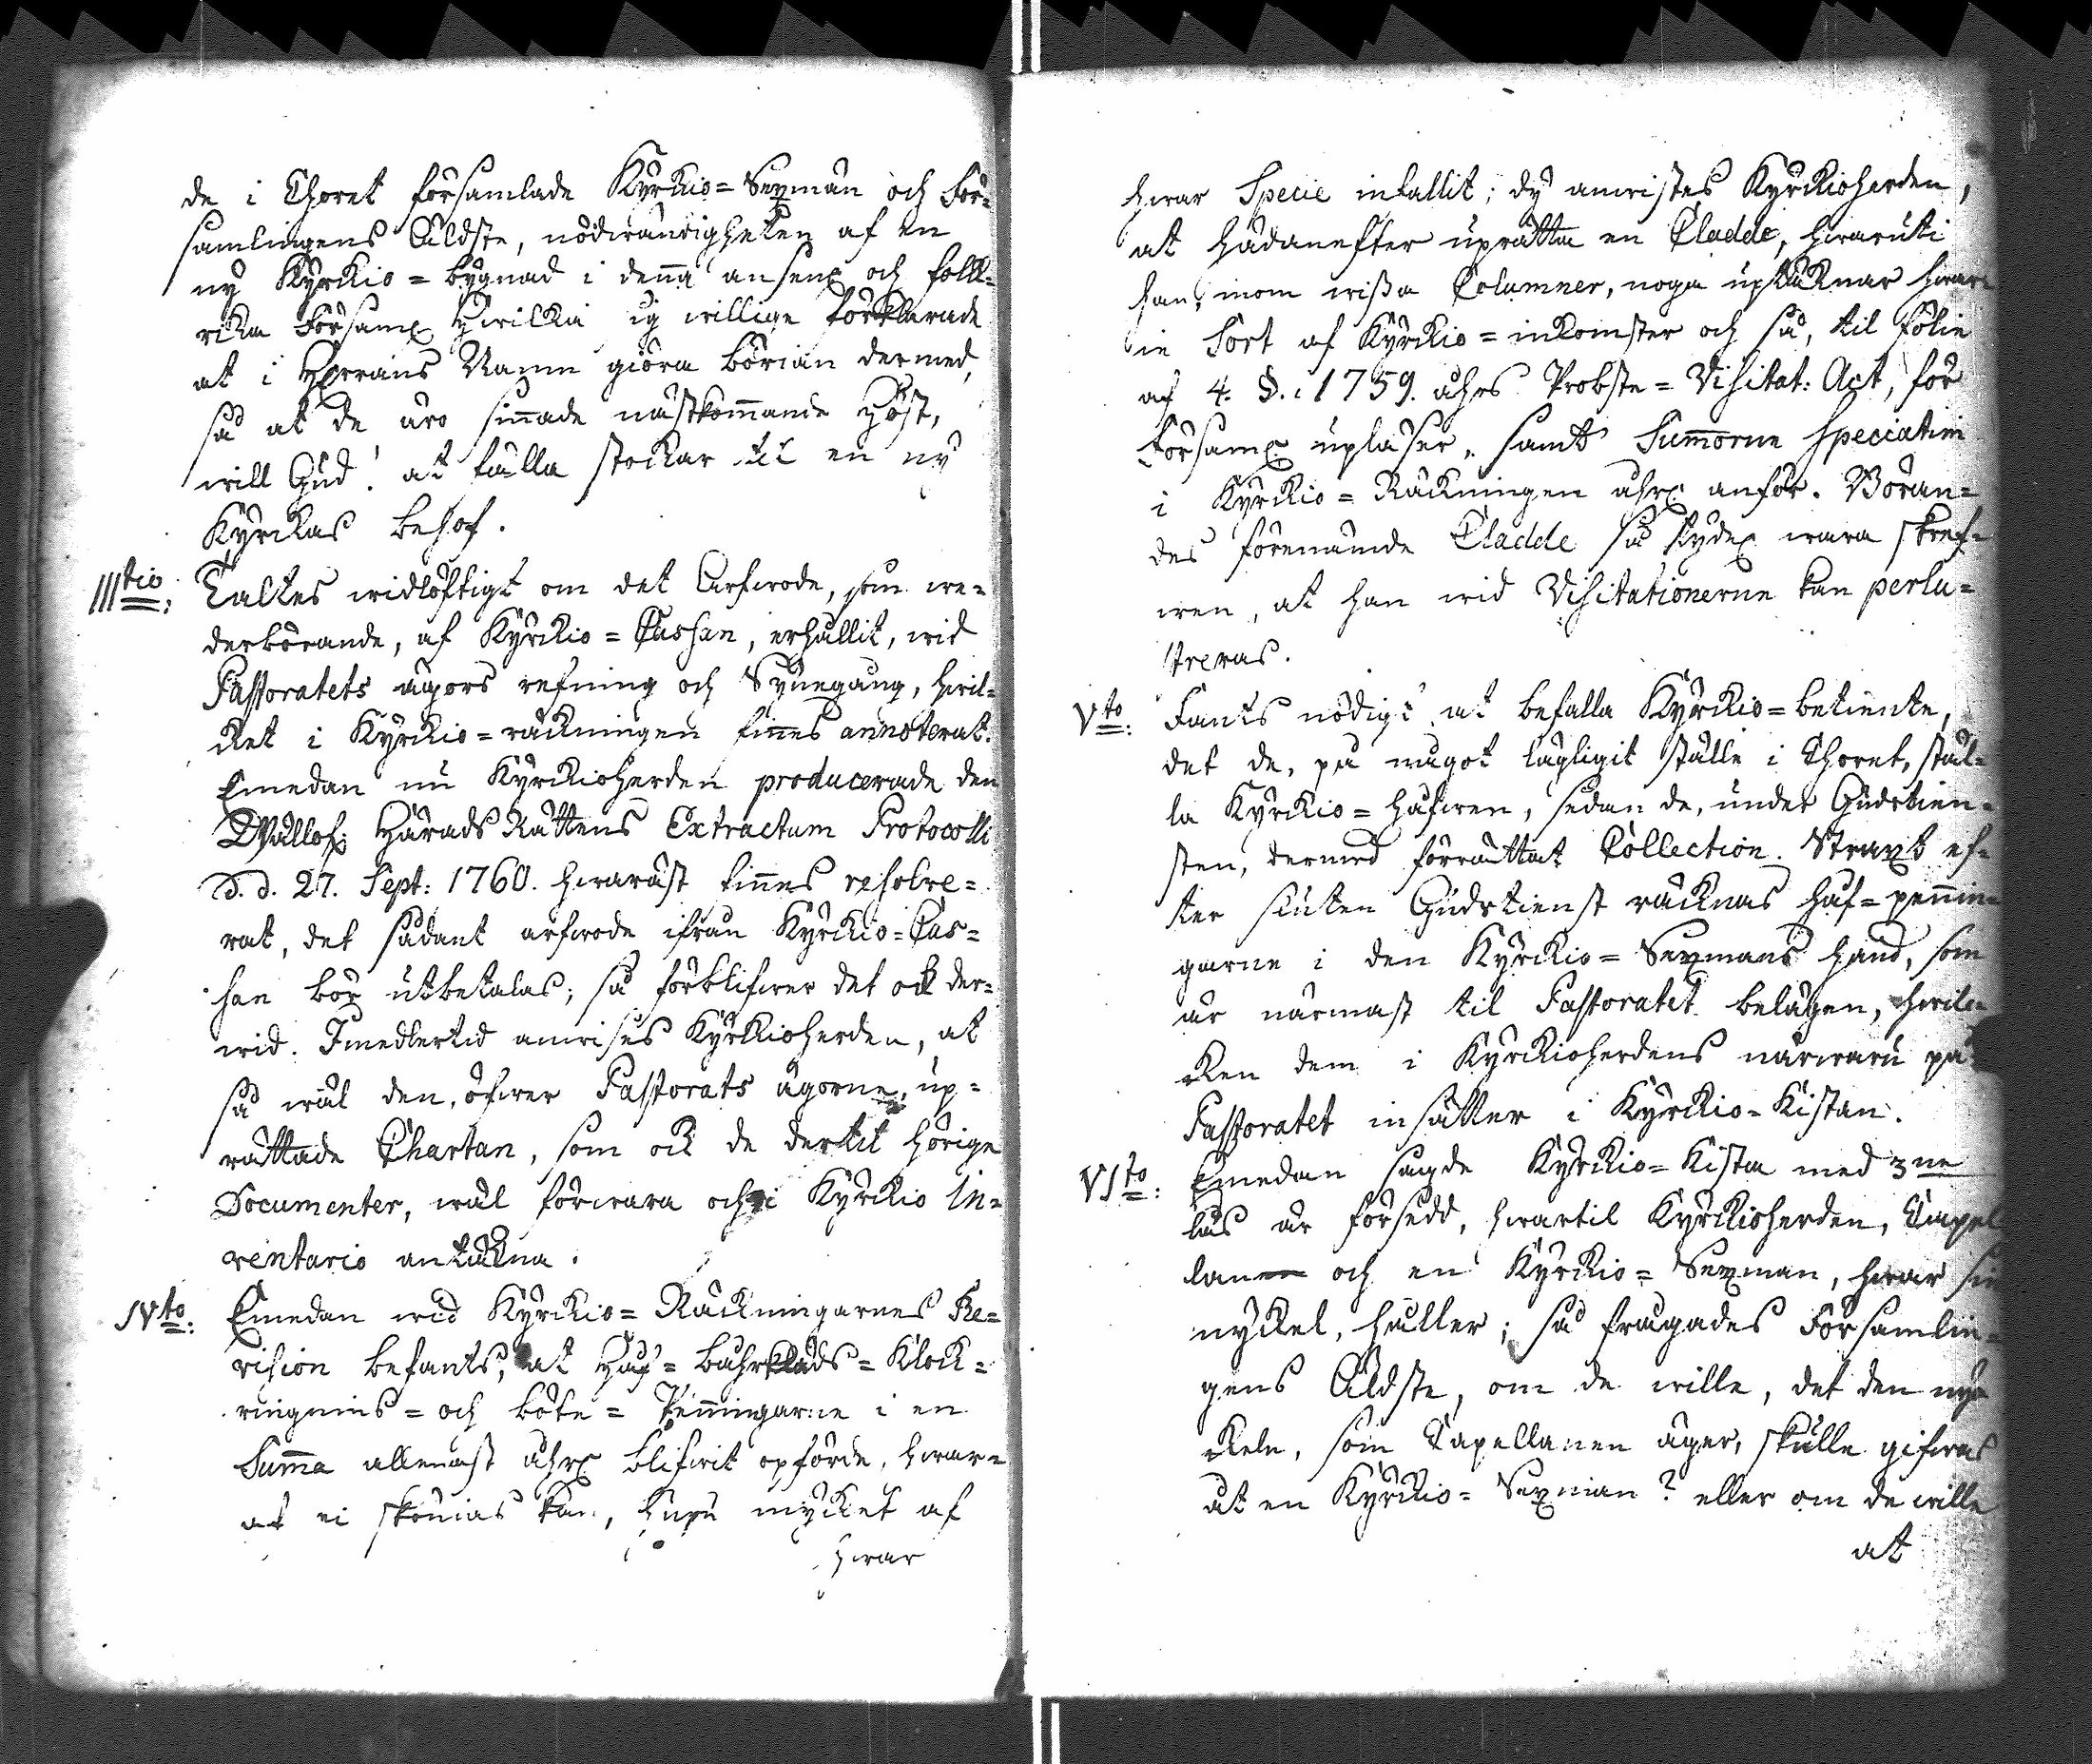 de i Choret församlade Kyrckio=Sexmän och För=
samlingens Äldste, nödwändigheten af en
ny Kyrckio=bygnad i denna ansenl. och folck=
rika Församl. Hwilka sig willige förklarade
at i Herrans Namn giöra början dermed,
så at de äro sinnade nästkommande Höst,
will Gud! at fälla stockar til en ny
Kyrckas behof.
IIItio: Taltes widlöftigt om det Arfwode, som we=
derbörande, af Kyrckio=Cassan, erhållit, wid
Pastoratets ägors refning och Synegång, hwil=
cket i Kyrckio=räckningen finnes annoterat.
Emedan nu Kyrckioherden producerade den
Wällofl. HäradsRättens Extractum Protocolli
d.d. 27. Sept: 1760. hwaräst finnes resolve=
rat, det sådant arfwode ifrån Kyrckio=Cas=
san bör utbetalas; så förblifwer det ock der=
wid. Imedlertid anwises Kyrckioherden, at
så wäl den, öfwer Pastorats ägorne, up=
rättade Chartan, som ock de dertil hörige
Documenter, wäl förwara och i Kyrckio In=
ventario antäckna.
IVto: Emedan wid Kyrckio=Räckningarnes Re=
vision befants, at Håf=bahrkläds=Klock=
ringnins=och böte=Penningarne i en
Summa allenast åhrl. blifwit opförde, hwar=
af ei skönias kan, huru mycket af
hwar
hwar Specie infallit; dy anwistes Kyrckioherden,
at hädanefter uprätta en Cladde, hwaruti
han, inom wissa Columner, noga uptäcknar hwar
ie Sort af Kyrckio=inkomster och så, til fölie
af 4. §. i 1759. åhrs Probste=Visitat: Act, för
Församl. upläser, samt Summorne Speciatim
i Kyrckio=Räckningen åhrl. anför. Böran=
des förenämde Cladde så tydel. wara skref=
wen, at han wid Visitationerne kan perlu=
streras.
Vto: Fants nödigt at befalla Kyrckio=betiente,
det de, på något lägligit ställe i Choret, stäl=
la Kyrckio=håfwen, sedan de, under Gudstien=
sten, dermed förrättat Collection. Straxt ef=
ter sluten Gudstienst räcknas håf=pennin=
garne i den Kyrckio=Sexmans hand, som
är närmast til Pastoratet belägen, hwil=
cken dem i Kyrckioherdens närwaru på
Pastoratet insätter i Kyrckio=Kistan.
VIto: Emedan sagde Kyrckio=Kista med 3ne
lås är försedd, hwartil Kyrckioherden, Capel
lan och en Kyrckio=Sexman, hwar sin
nyckel, håller; så frågades Församlin=
gens Äldste, om de wille, det den nyc
ckeln, som Capellanen äger, skulle gifwas
åt en Kyrckio=Sexman? eller om de wille
at